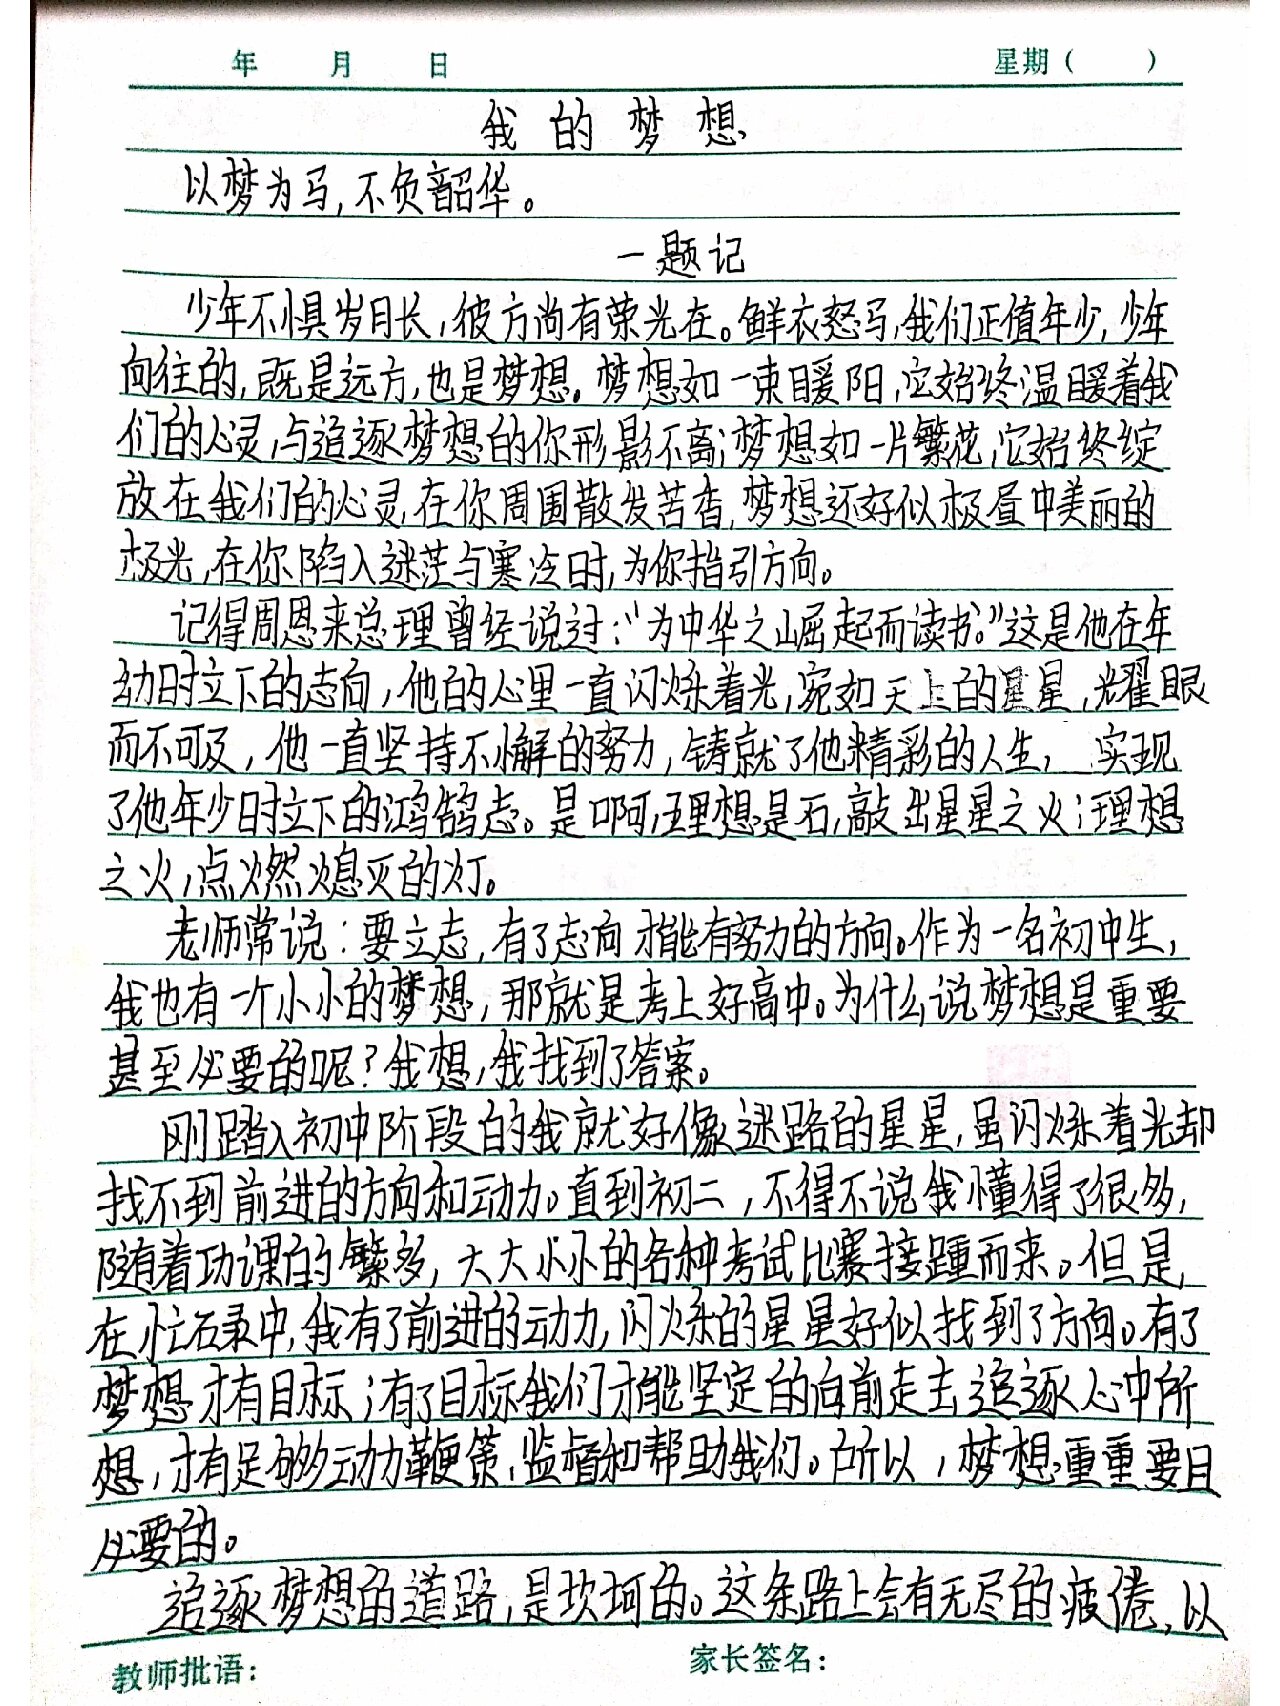 年 月 日 星期( )
我的梦想
以梦为马,不负韶华。
一题记
少年不惧岁月长,彼方尚有荣光在。鲜衣怒马,我们正值年少,少年
向往的,既是远方,也是梦想。梦想如一束暖阳,它始终温暖着我
们的心灵,与追逐梦想的你形影不离;梦想如一片繁花,它始终绽
放在我们的心灵,在你周围散发苦香,梦想还好似极昼中美丽的
极光,在你陷入迷茫与寒冷时,为你指引方向。
记得周恩来总理曾经说过:“为中华之崛起而读书。”这是他在年
幼时立下的志向,他的心里一直闪烁着光,宛如天上的星星,耀眼
而不可及,他一直坚持不懈的努力,铸就了他精彩的人生,实现
了他年少时立下的鸿鹄志。是啊,理想是石,敲出星星之火;理想
之火,点燃熄灭的灯。
老师常说:要立志,有了志向才能有努力的方向。作为一名初中生,
我也有一个小小的梦想,那就是考上好高中。为什么说梦想是重要
甚至必要的呢?我想,我找到了答案。
刚踏入初中阶段的我就好像迷路的星星,虽闪烁着光却
找不到前进的方向和动力。直到初二,不得不说我懂得了很多,
随着功课的繁多,大大小小的各种考试比赛接踵而来。但是,
在忙碌中,我有了前进的动力,闪烁的星星好似找到了方向。有了
梦想才有目标;有了目标我们才能坚定的向前走去,追逐心中所
想,才有足够动力鞭策,监督和帮助我们。所以,梦想重重要且
必要的。
追逐梦想的道路,是坎坷的。这条路上会有无尽的疲倦,以
教师批语: 家长签名: